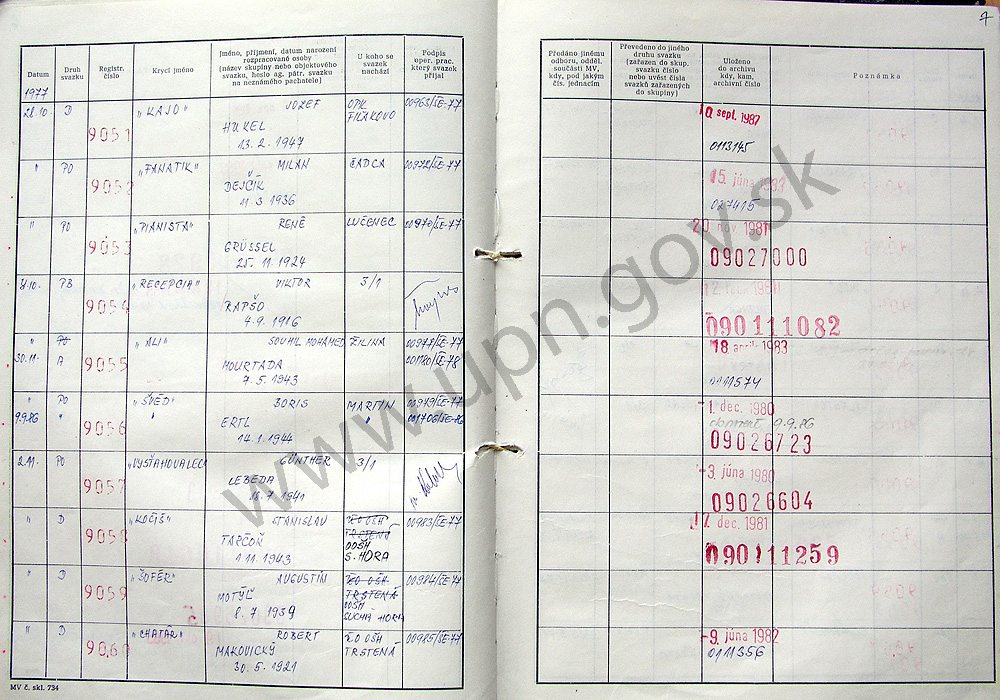 7
Datum
Druh svazku
Registr. číslo
Krycí jméno
Jméno, příjmení, datum narození rozpracované osoby
(název skupiny nebo objektového svazku, heslo ag. pátr. svazku na neznámého pachatele)
U koho se svazek nachází
Podpis oper. prac. který svazek přijal
Předáno jinému odboru, odděl. součásti MV, kdy, pod jakým čís. jednacím
Převedeno do jiného druhu svazku (zařazen do skup. svazku číslo nebo uvést čísla svazků zařazených do skupiny)
Uloženo do archivu kdy, kam, archivní číslo
Poznámka
1977
28.10. D 9051 „KAJO" JOZEF OPK 00963/ŠE-77
HUKEL FIĽAKOVO
13. 2. 1947
10 sept. 1987
0113145
" PO 9052 „FANATIK" MILAN ČADCA 00972/ŠE-77
DEJČÍK
11. 3 1936
15. júna
027415
" PO 9053 „PIANISTA" RENÉ LUČENEC 00970/ŠE-77
GRÜSSEL
25. 11. 1924
20. nov 1981
09027000
PB 9054 „RECEPCIA" VIKTOR 3/1
RAPŠO
4. 9. 1916
090111082
" PO 9055 „ALI" SOUHIL MOHAMED ŽILINA 00977/ŠE-77
30.11. A MOURTADA 001180/ŠE-78
7. 5. 1943
18. apríla 1983
0111574
" PO 9056 „ŠVÉD" BORIS MARTIN 00979/ŠE-77
9.9.86 " " ERTL " 001706/ŠE-86
14. 1. 1944
-1. dec. 1980
9.9.86
09026723
2.11. PO 9057 „VYSŤAHOVALEC" GÜNTHER 3/1
LEBEDA
18. 7 1941
-3. júna 1980
09026604
" D 9058 „KOČIŠ" STANISLAV ŽO OSH 00983/ŠE-77
TARČOŇ TRSTENÁ
1 11. 1943 OOSH
S. HORA
17. dec. 1981
090111259
" D 9059 „ŠOFÉR" AUGUSTÍN ŽO OSH 00984/ŠE-77
MOTÝĽ TRSTENÁ
8. 7. 1939 OOSH
SUCHÁ HORA
" D 9060 „CHATÁR" ROBERT ŽO OSH 00985/ŠE-77
MAKOVICKÝ TRSTENÁ
30. 5. 1921
-9. júna 1982
0111356
MV č. skl. 734
www.upn.gov.sk